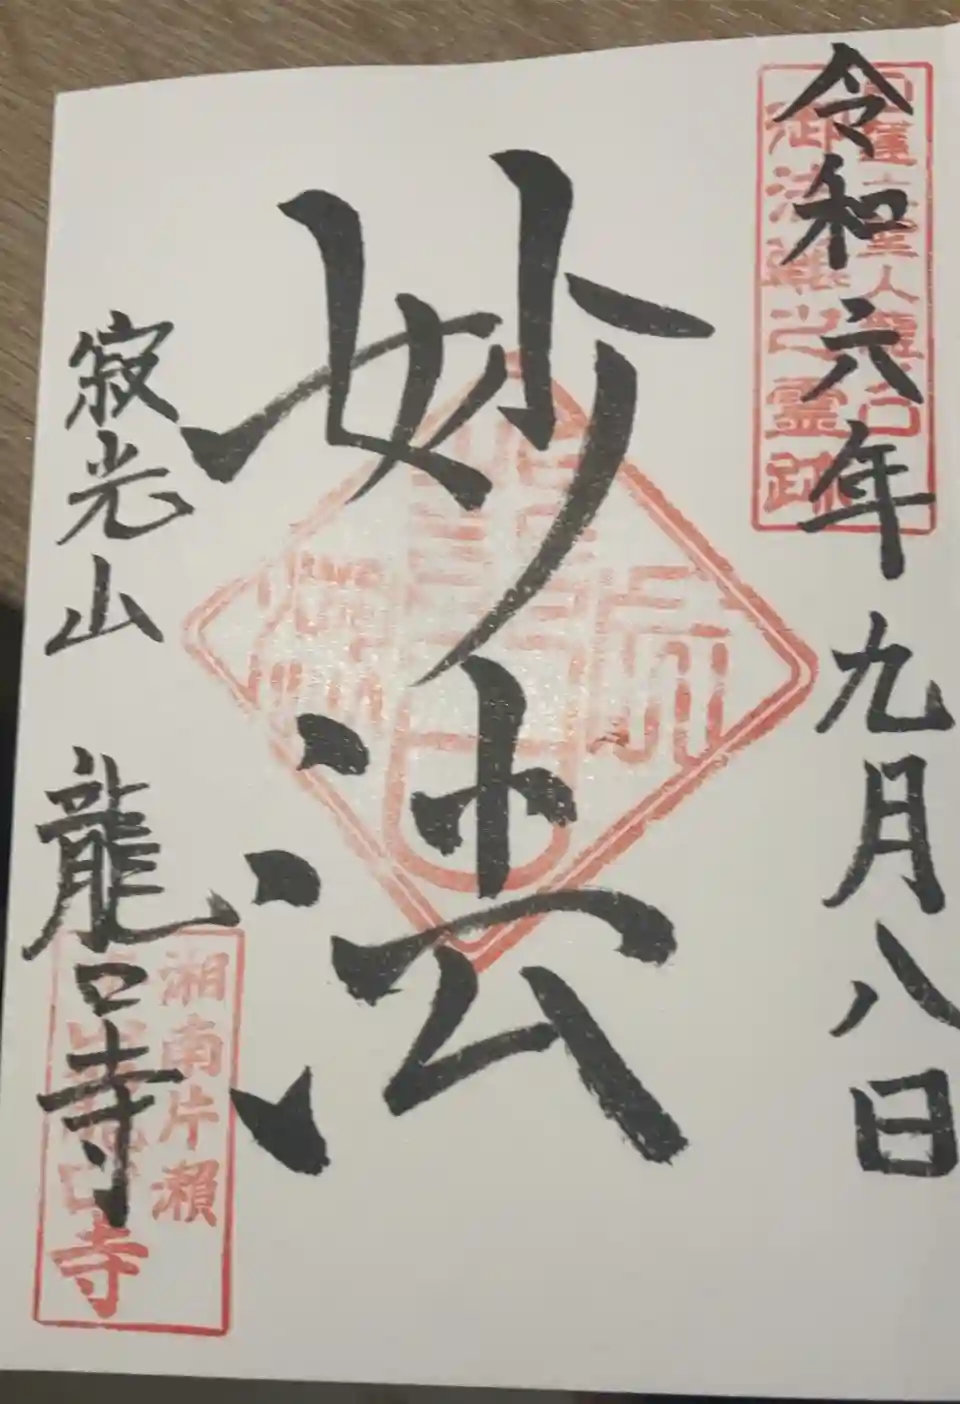 令和六年九月八日
日蓮大聖人龍ノ口
御法難之霊跡
妙法
寂光山 龍口寺
湘南片瀬
寺